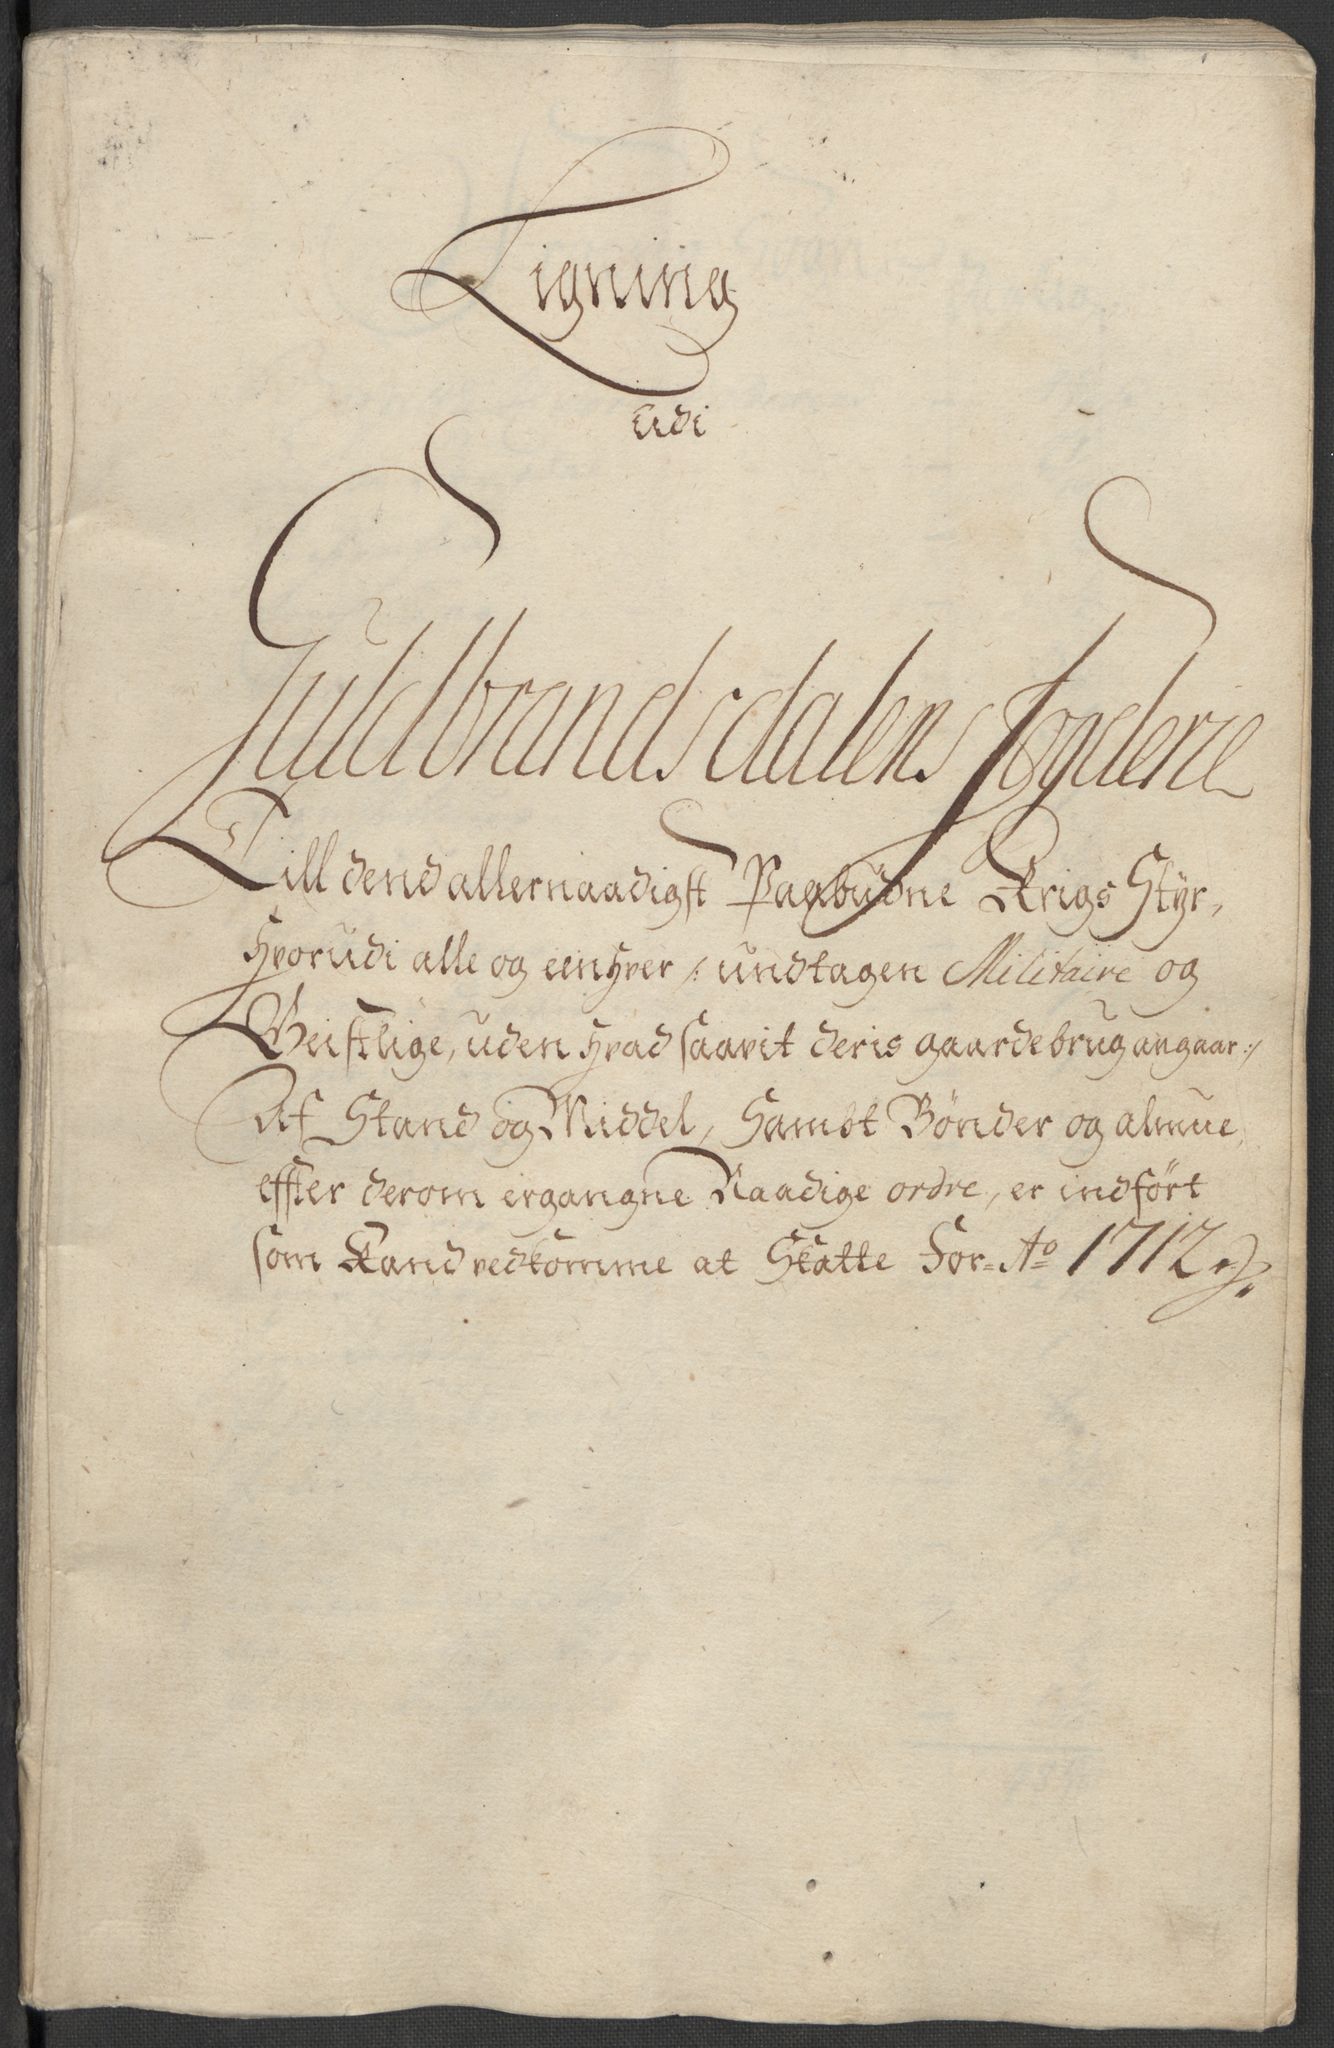 Ligning
udi
Guldbrandsdalens fogderie
Till dend allernaadigst Paabudne Krigs Styr,
hvorudi alle og eenhver /: undtagen Militaire og
Geistlige, uden hvad saavit deris gaardebrug angaar :/
Af Stand og Middel, Sambt Bønder og almue,
effter derom ergangne Naadige ordre, er indført
som Kand vedkomme at Skatte for Ao 1712